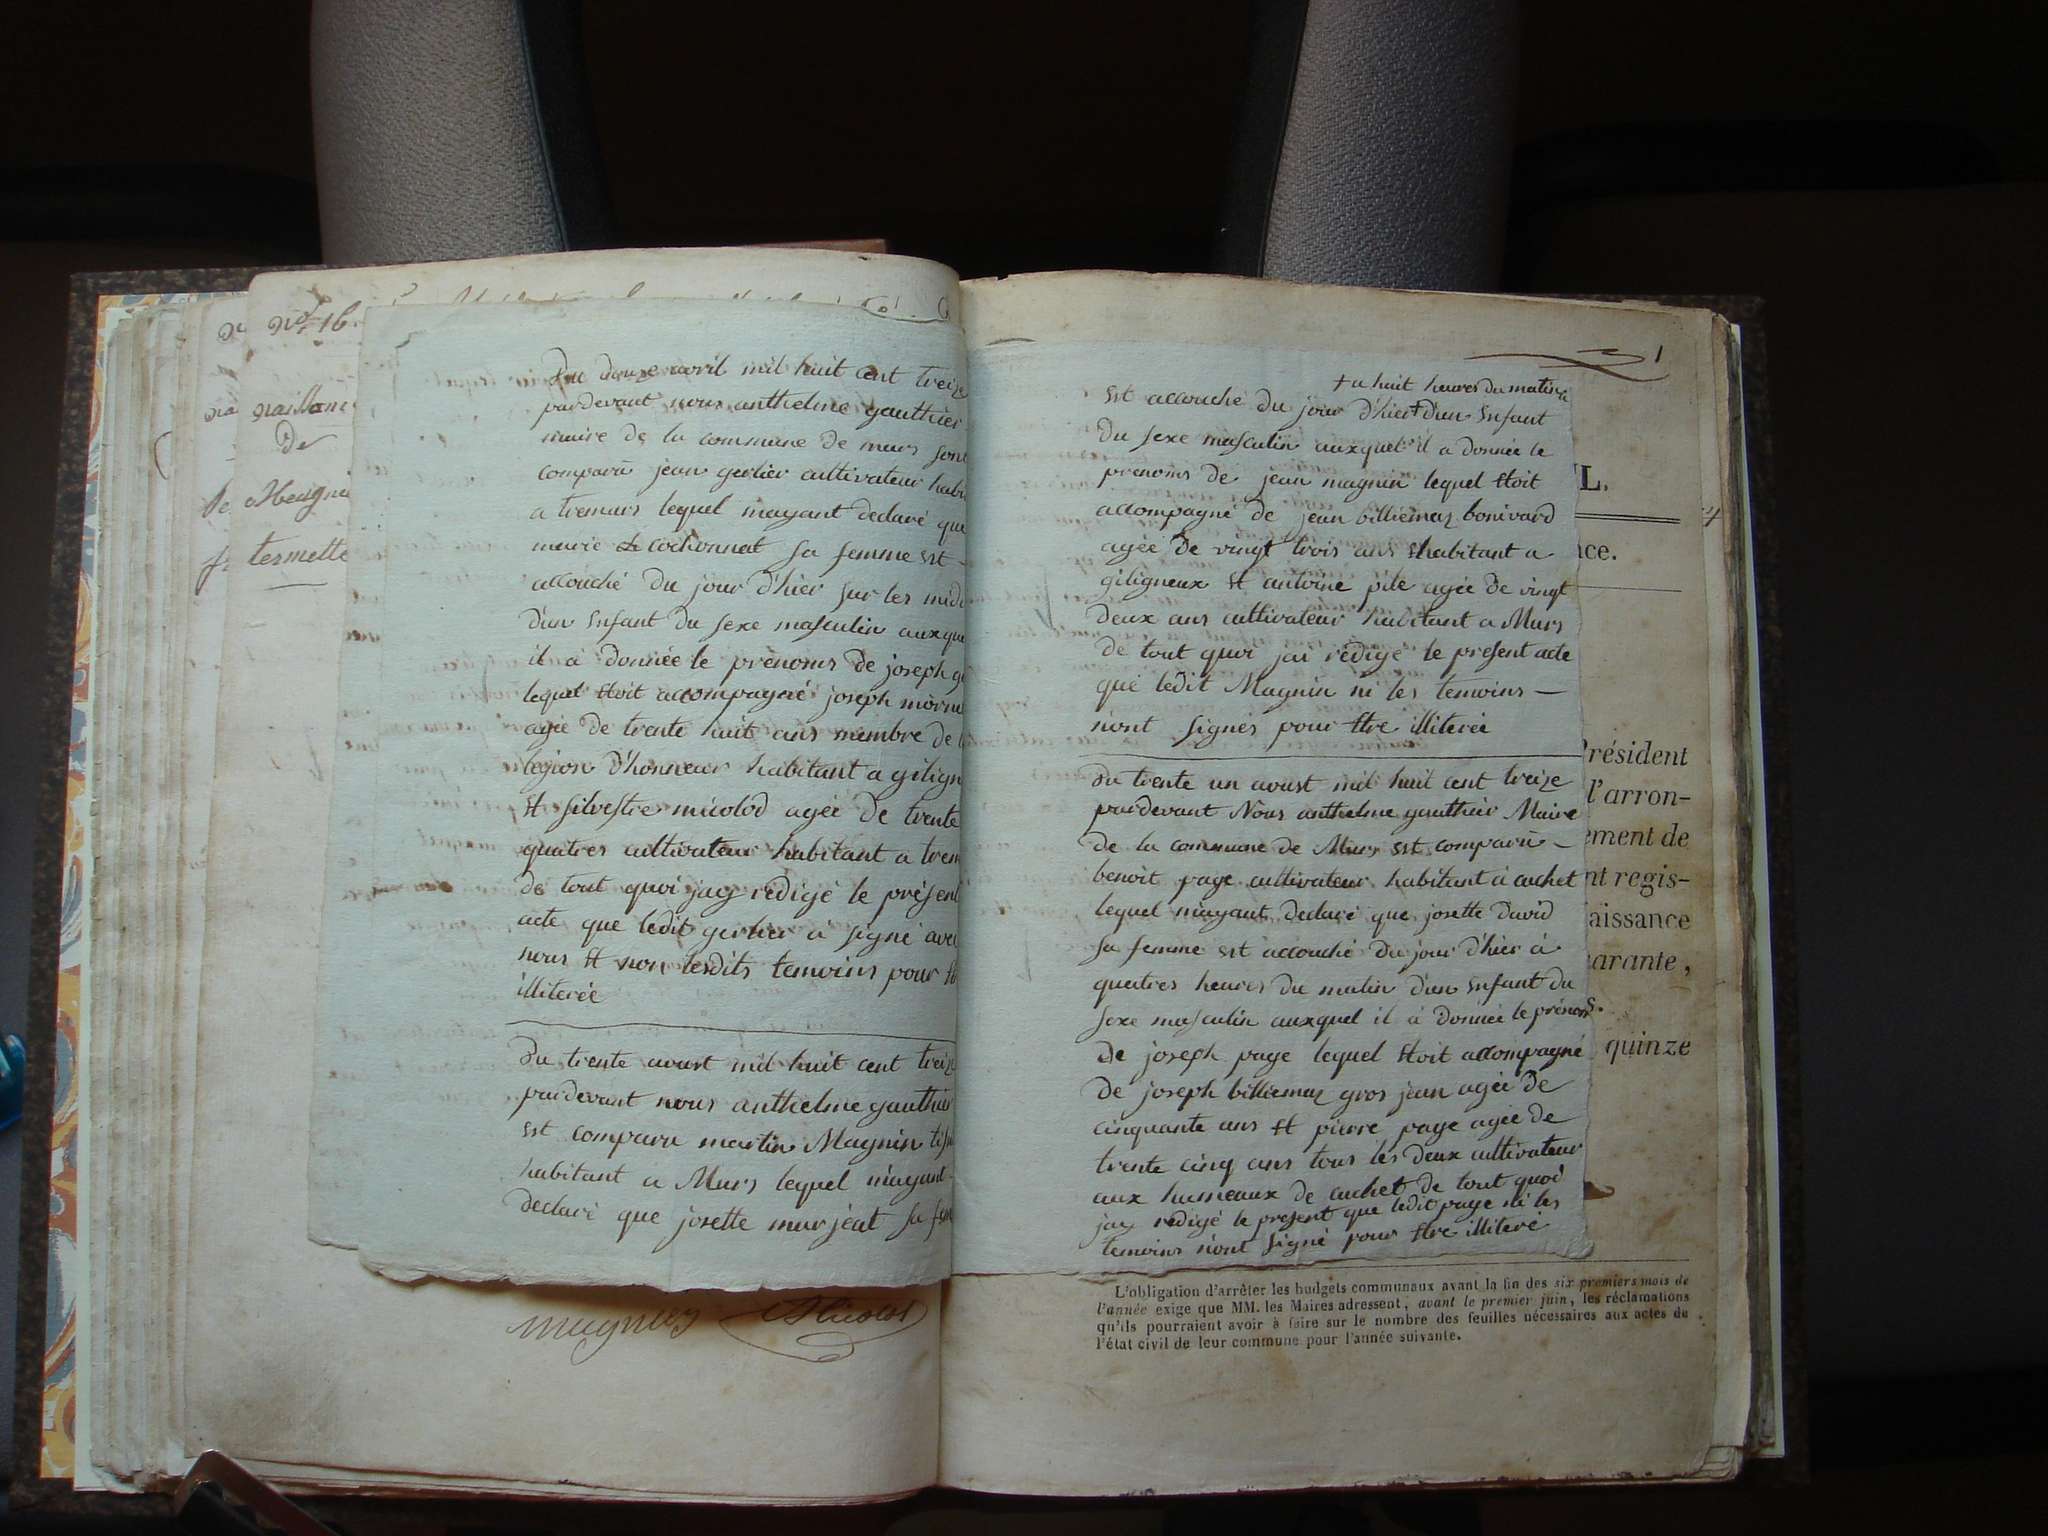 No. 16.
naissance
de
termette
Du douze avril mil huit cent treize
pardevant nous anthelme gauthier
maire de la commune de murs sont
comparu jean gerlier cultivateur habi
a tremurs lequel mayant declaré que
marie cochonnat sa femme est -
accouché du jour d'hier sur les midi
d'un Enfant du sexe masculin auxque
il a donnée le prénoms de joseph ge
lequel Etoit accompagné joseph
agée de trente huit ans membre de l
légion d'honneur habitant a gilign
Et silvestre micolod agée de trente
quatres cultivateur habitant a trem
de tout quoi jay redigé le présent
acte que ledit gerlier a signé avec
nous Et non lesdits temoins pour
illiterée
Du trente aoust mil huit cent treize
pardevant nous anthelme gauthier
Est comparu martin Magnin
habitant a Murs lequel mayant -
declaré que josette murjeat sa fem
1
+ a huit heures du matin
Est accouché du jour d'hier + d'un Enfant
du sexe masculin auxquel il a donnée le
prenoms de jean magnin lequel Etoit
accompagné de jean billiemaz bonivard
agée de vingt trois ans habitant a
giligneux Et antoine pile agée de vingt
deux ans cultivateur habitant a Murs
de tout quoi jai rédigé le present acte
que ledit Magnin ni les temoins —
n'ont signés pour Etre illiterée
Du trente un aoust mil huit cent treize
pardevant Nous anthelme gauthier Maire
de la commune de Murs Est comparu -
benoit page cultivateur habitant à cuchet
lequel mayant declaré que josette david
sa femme est accouché du jour d'hier à
quatres heures du matin d'un Enfant du
sexe masculin auxquel il a donnée le prénoms
de joseph page lequel Etoit accompagné
de joseph billiemaz gros jean agée de
cinquante ans Et pierre page agée de
trente cinq ans tous les deux cultivateur
aux hameaux de cuchet de tout quoi
jay redigé le present que ledit page ni les
temoins n'ont signé pour Etre illiteré
L.
ce.
résident
l'arron-
ement de
nt regis-
aissance
arante,
s.
quinze
L'obligation d'arrêter les budgets communaux avant la fin des six premiers mois de
l'année exige que MM. les Maires adressent, avant le premier juin, les réclamations
qu'ils pourraient avoir à faire sur le nombre des feuilles nécessaires aux actes de
l'état civil de leur commune pour l'année suivante.